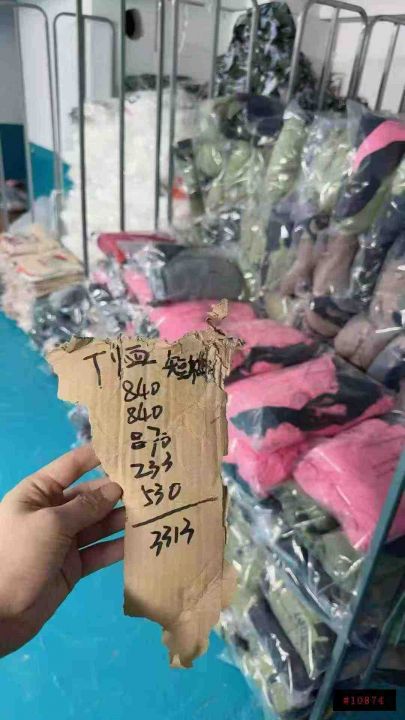 T恤 短袖
840
840
870
233
530
3313
#10874